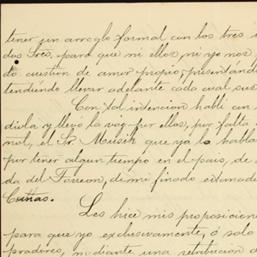 tener un arreglo formal con los tres i
dos Sres, para que ni ellos, ni yo nos
do cuestion de amor propio, presentándo
tendiendo llevar adelante cada cual sus
Con tal intencion hablé con
diola y llevó la voz por ellos, por falta
nol, el Sr Musih que ya lo habla
por tener algun tiempo en el pais, de
da del Torreon, de mi finado estimado
Cuñas.
Les hice mis proposicione
para que yo esclusivamente, ó solo
pradores, mediante una retribucion d